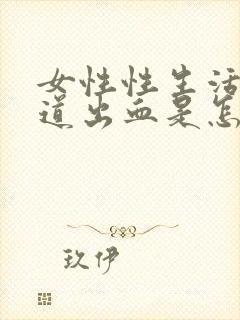 女性性生活
道出血是怎
玖伊